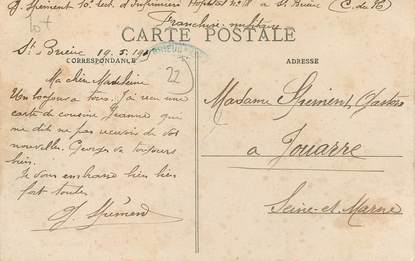 G. Spément 10e sect. d'Infirmiers Hopital n° 18 à St Brieuc (C. du N.)
Franchise militaire
CARTE POSTALE
CORRESPONDANCE
ADRESSE
St Brieuc 19.5.19
22
Ma chère Madeleine
Un bonjour à tous. J'ai reçu une
carte de cousine Jeanne qui
me dit ne pas recevoir de vos
nouvelles. Georges va toujours
bien.
Je vous embrasse bien bien
fort toutes
G. Spément
Madame Spément Gaston
a Jouarre
Seine-et-Marne